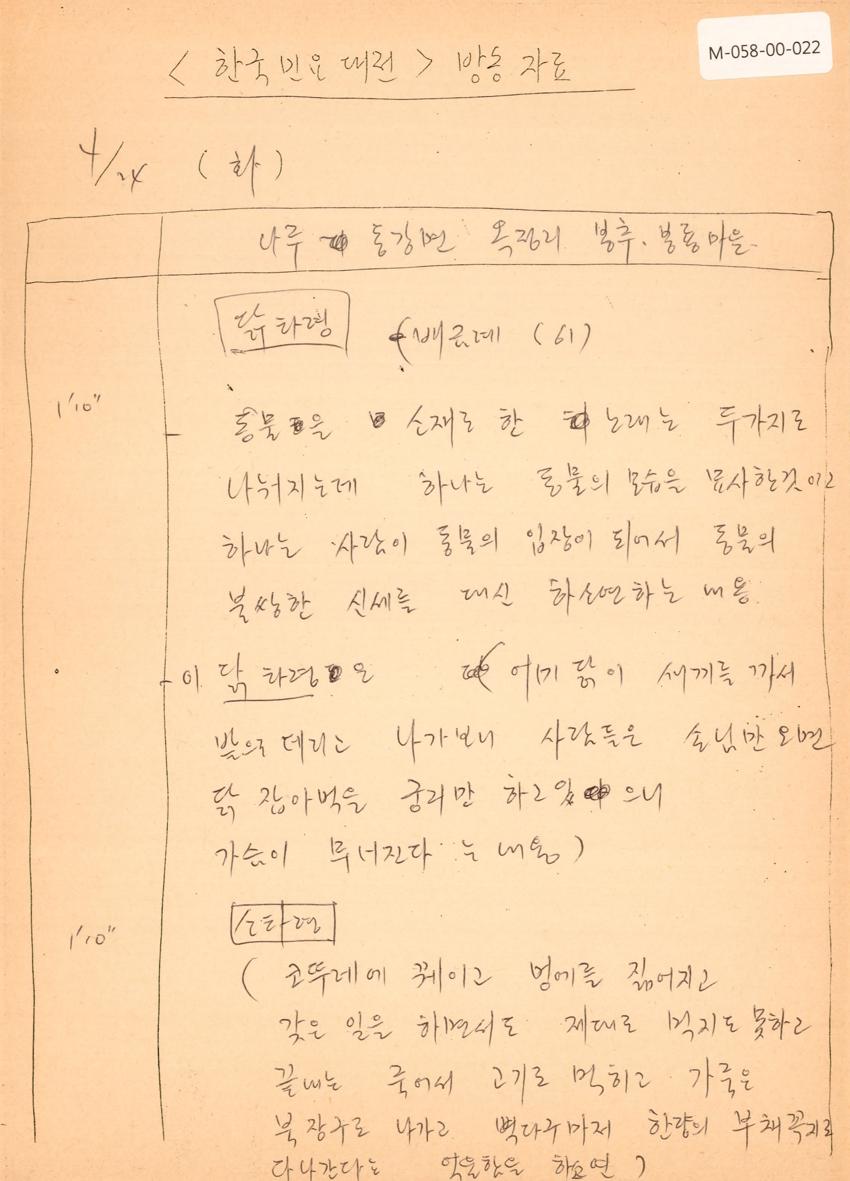 M-058-00-022
< 한국민요대전 > 방송 자료
4/24 (화)
나주 동강면 옥정리 봉추. 봉룡마을.
닭타령 (배금례 (61)
1'10"
동물을 소재로 한 노래는 두가지로
나눠지는데 하나는 동물의 모습을 묘사한것이고
하나는 사람이 동물의 입장이 되어서 동물의
불쌍한 신세를 대신 하소연하는 내용.
- 이 닭타령은 (어미닭이 새끼를 까서
밖으로 데리고 나가보니 사람들은 손님만 오면
닭 잡아먹을 궁리만 하고있으니
가슴이 무너진다 는 내용)
소타령
1'10"
( 코뚜레에 꿰이고 멍에를 짊어지고
갖은 일을 하면서도 제대로 먹지도 못하고
끝내는 죽어서 고기로 먹히고 가죽은
북 장구로 나가고 뼉다구마저 한량의 부채꼭지로
다나간다는 억울함을 하소연 )